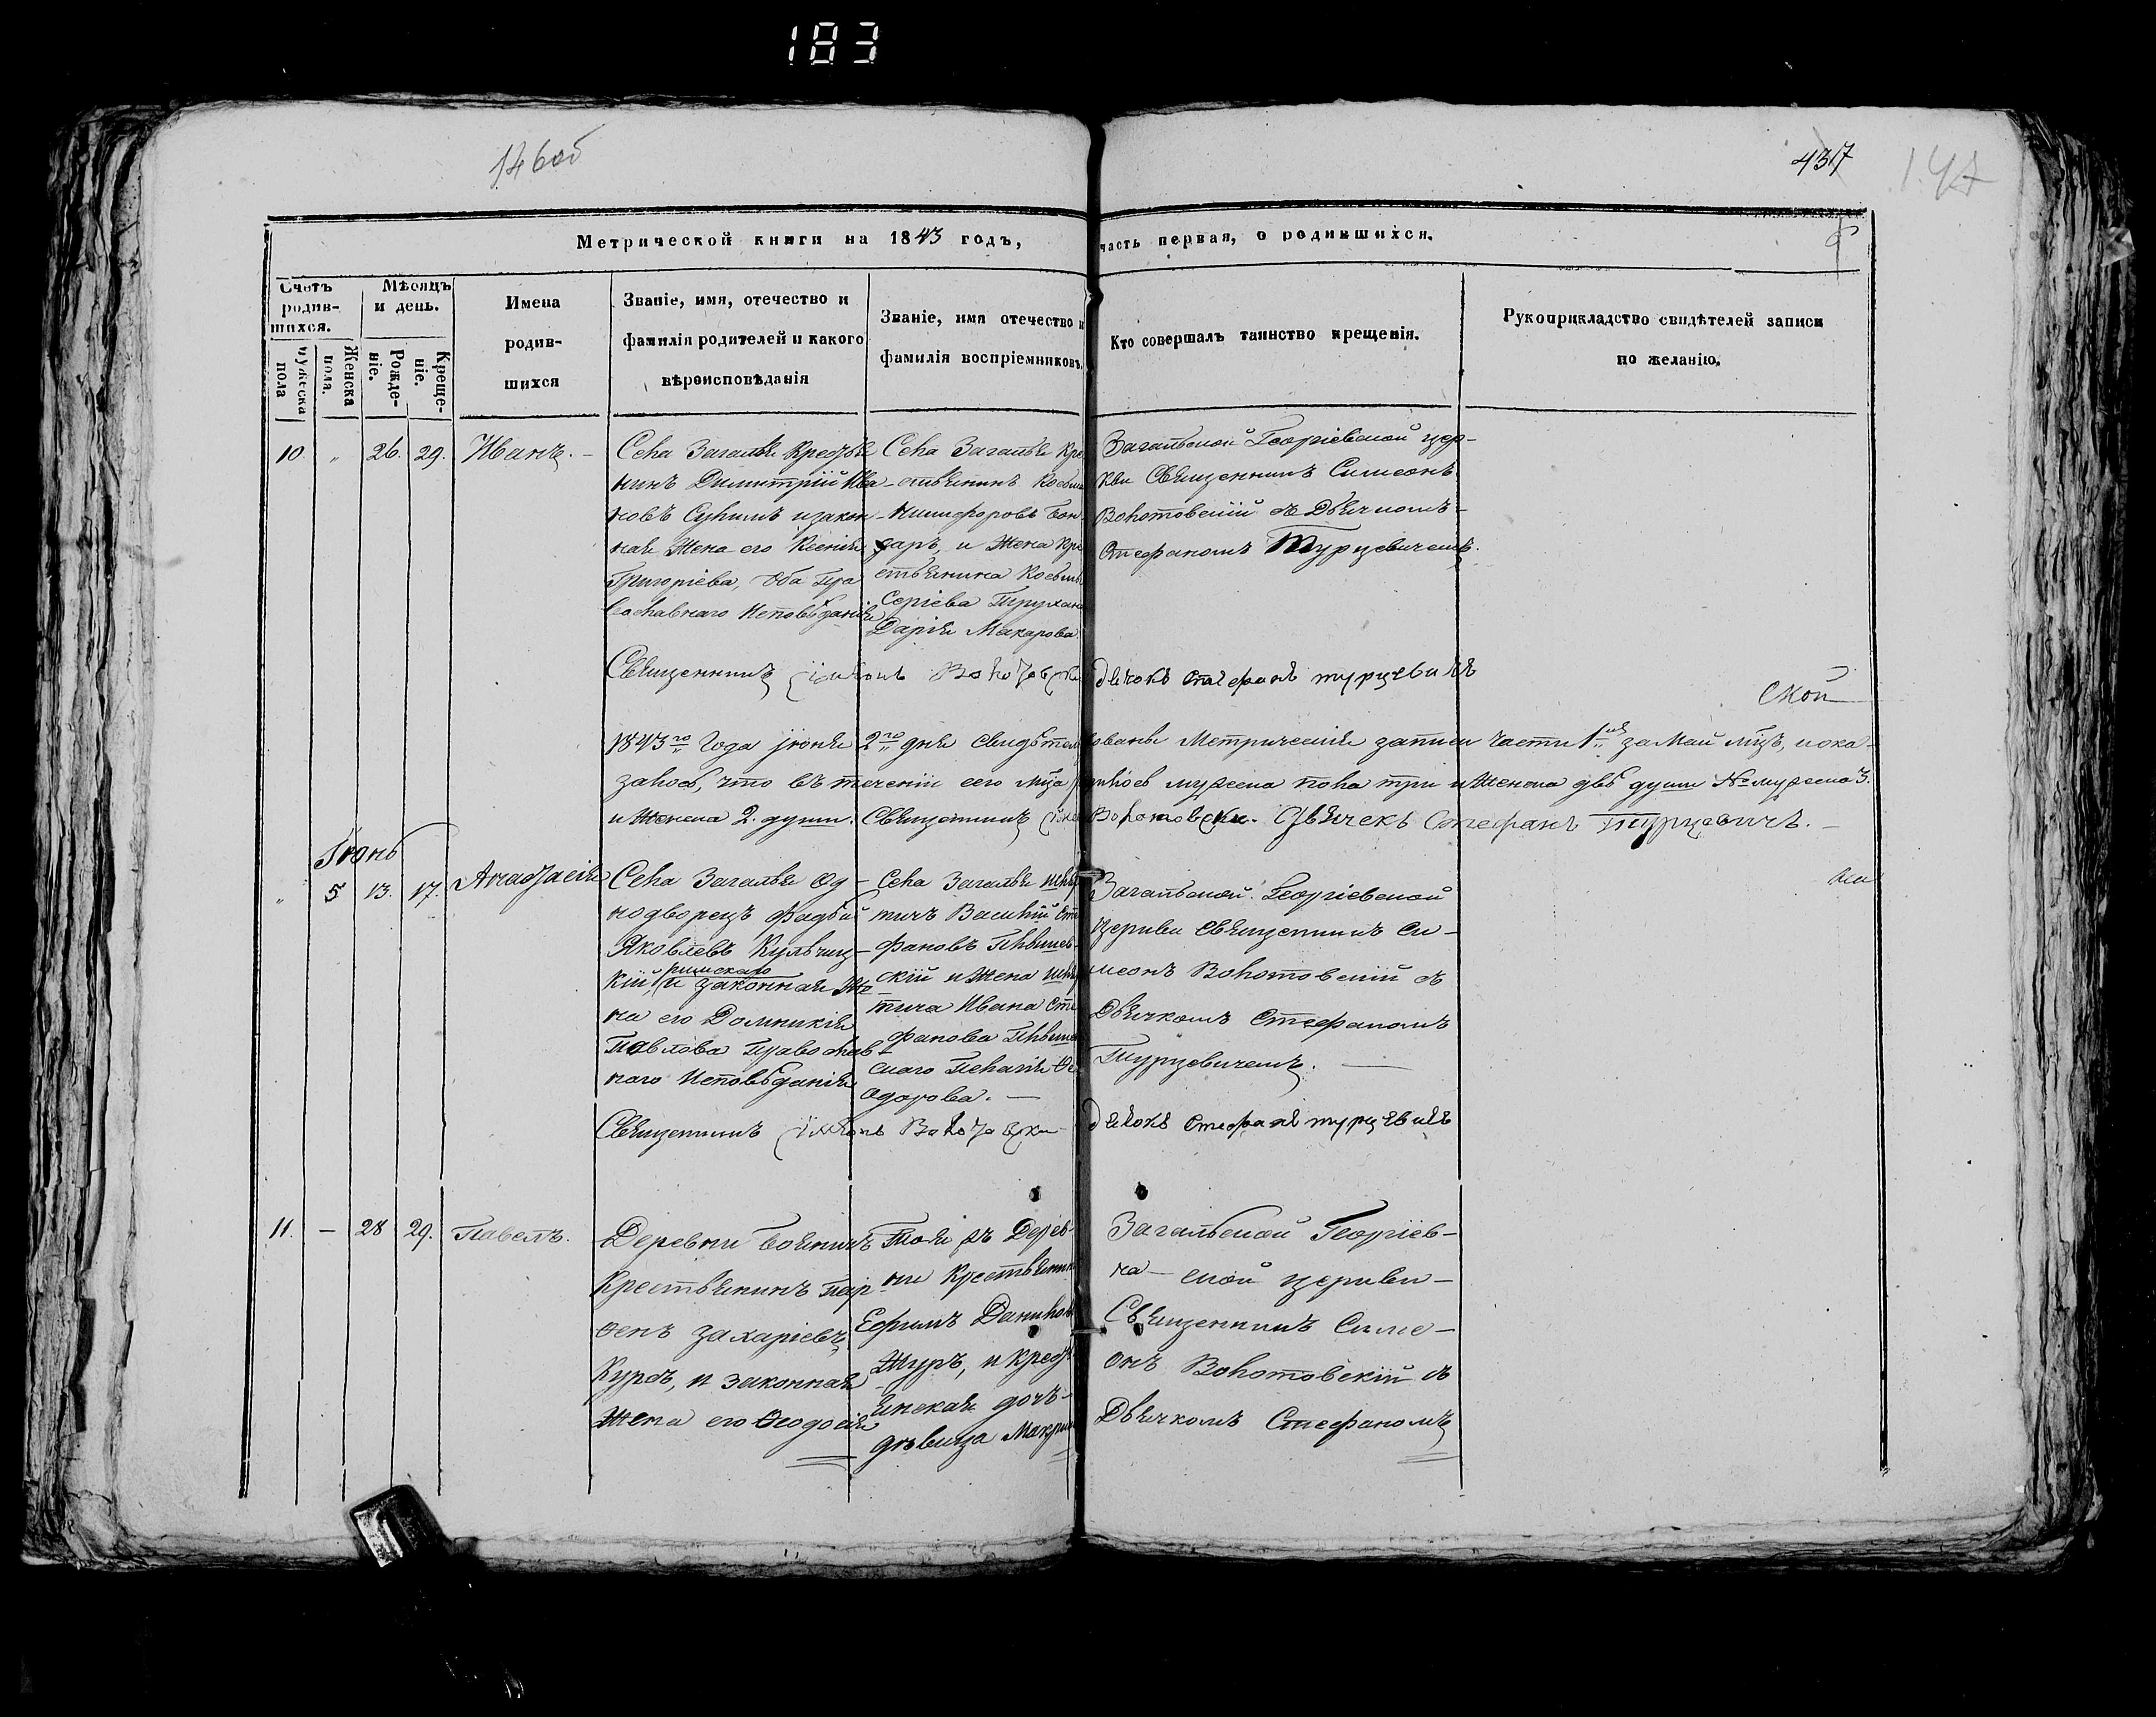 183
146об
437
147
Метрической книги на 1843 годъ, часть первая, о родившихся.
Счетъ родив-
шихся.
мужеска пола
Женска пола.
Мѣсяцъ и день.
Рожде-
ніе.
Креще-
ніе.
Имена
родив-
шихся
Званіе, имя, отечество и
фамилія родителей и какого
вѣроисповѣданія
Званіе, имя отечество и
фамилія воспріемниковъ.
Кто совершалъ таинство крещенія.
Рукоприкладство свидѣтелей записи
по желанію.
10. „ 26. 29. Иванъ. –
Села Загалья Крестья
нинъ Димитрій Ива
новъ Сушимъ и закон
ная Жена его Ксенія
Григоріева, Оба Пра
вославнаго Исповѣданія
Села Загалья Кре
стьянинъ Косьма
Никифоровъ Бон
даръ, и Жена Кре
стьянина Косьмы
Сергіева
Дарія Макарова
Загальской Георгіевской цер-
кви Священникъ Симеонъ
Волотовскій съ Дьячкомъ
Стефаномъ Турцевичемъ.
Священникъ Симеонъ Волотовски дьячокъ Стефанъ турцевичъ
1843го Года іюня 2го дня свидѣтельствованы Метрическія записи части 1ия за Май мцъ, и ока-
залось, что въ теченіи сего мца родилось мужеска пола три и Женска двѣ души № мужеска 3.
и Женска 2. души. Священникъ Симеонъ Волотовски. Дьячекъ Стефанъ Турцевичъ. –
Іюнь
„ 5 13. 17. Анастасія
Села Загалья Од-
нодворецъ Фадѣй
Яковлевъ Кульчиц-
кій, римскаго и законная Же
на его Домникія
Павлова Православ
наго Исповѣданія
Села Загалья Шлях
тичъ Василій Сте
фановъ
скій и Жена Шлях
тича Ивана Сте
фанова
скаго Пелагія Ѳе
одорова. –
Загальской Георгіевской
Церкви Священникъ Си-
меонъ Волотовскій съ
Дьячкомъ Стефаномъ
Турцевичемъ. –
Священникъ Симеонъ Волотовски дьячокъ Стефанъ турцевичъ
11. – 28 29. Павелъ.
Деревни
Крестьянинъ Пар
ѳенъ Захаріевъ
Курсъ, и законная
Жена его Ѳеодосія
Тояжъ Дерев-
ни Крестьянинъ
Ефимъ Данилов
Журъ, и Крест
янская дочь
дѣвица Макрина
Загальской Георгіев-
ской церкви
Священникъ Симе-
онъ Волотовскій съ
Дьячкомъ Стефаномъ